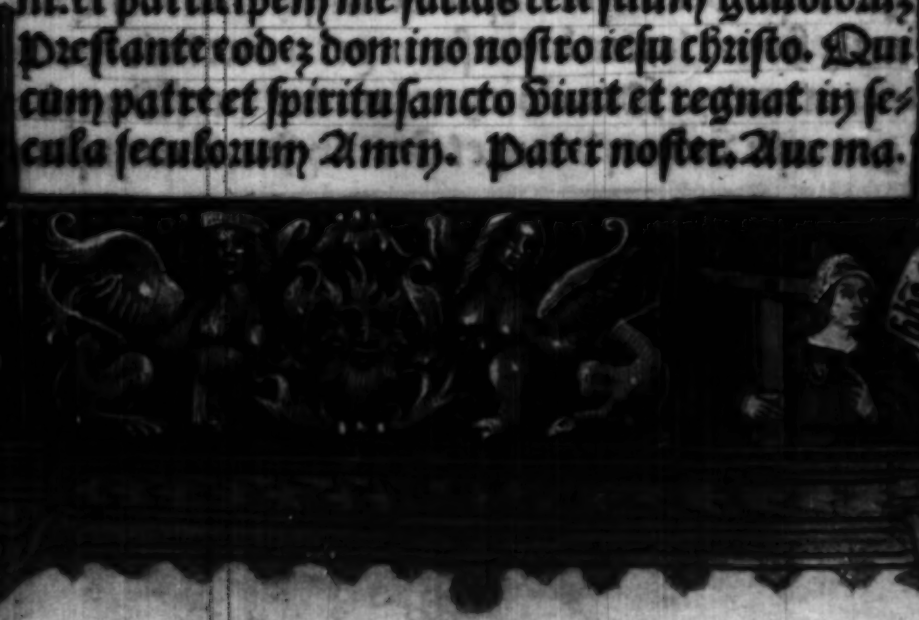 et participem me facias celestium gaudiorum
Prestante eodez domino nostro iesu christo. Qui
cum patre et spiritu sancto viuit et regnat in se⸗
cula seculorum Amen. Pater noster. Aue ma.